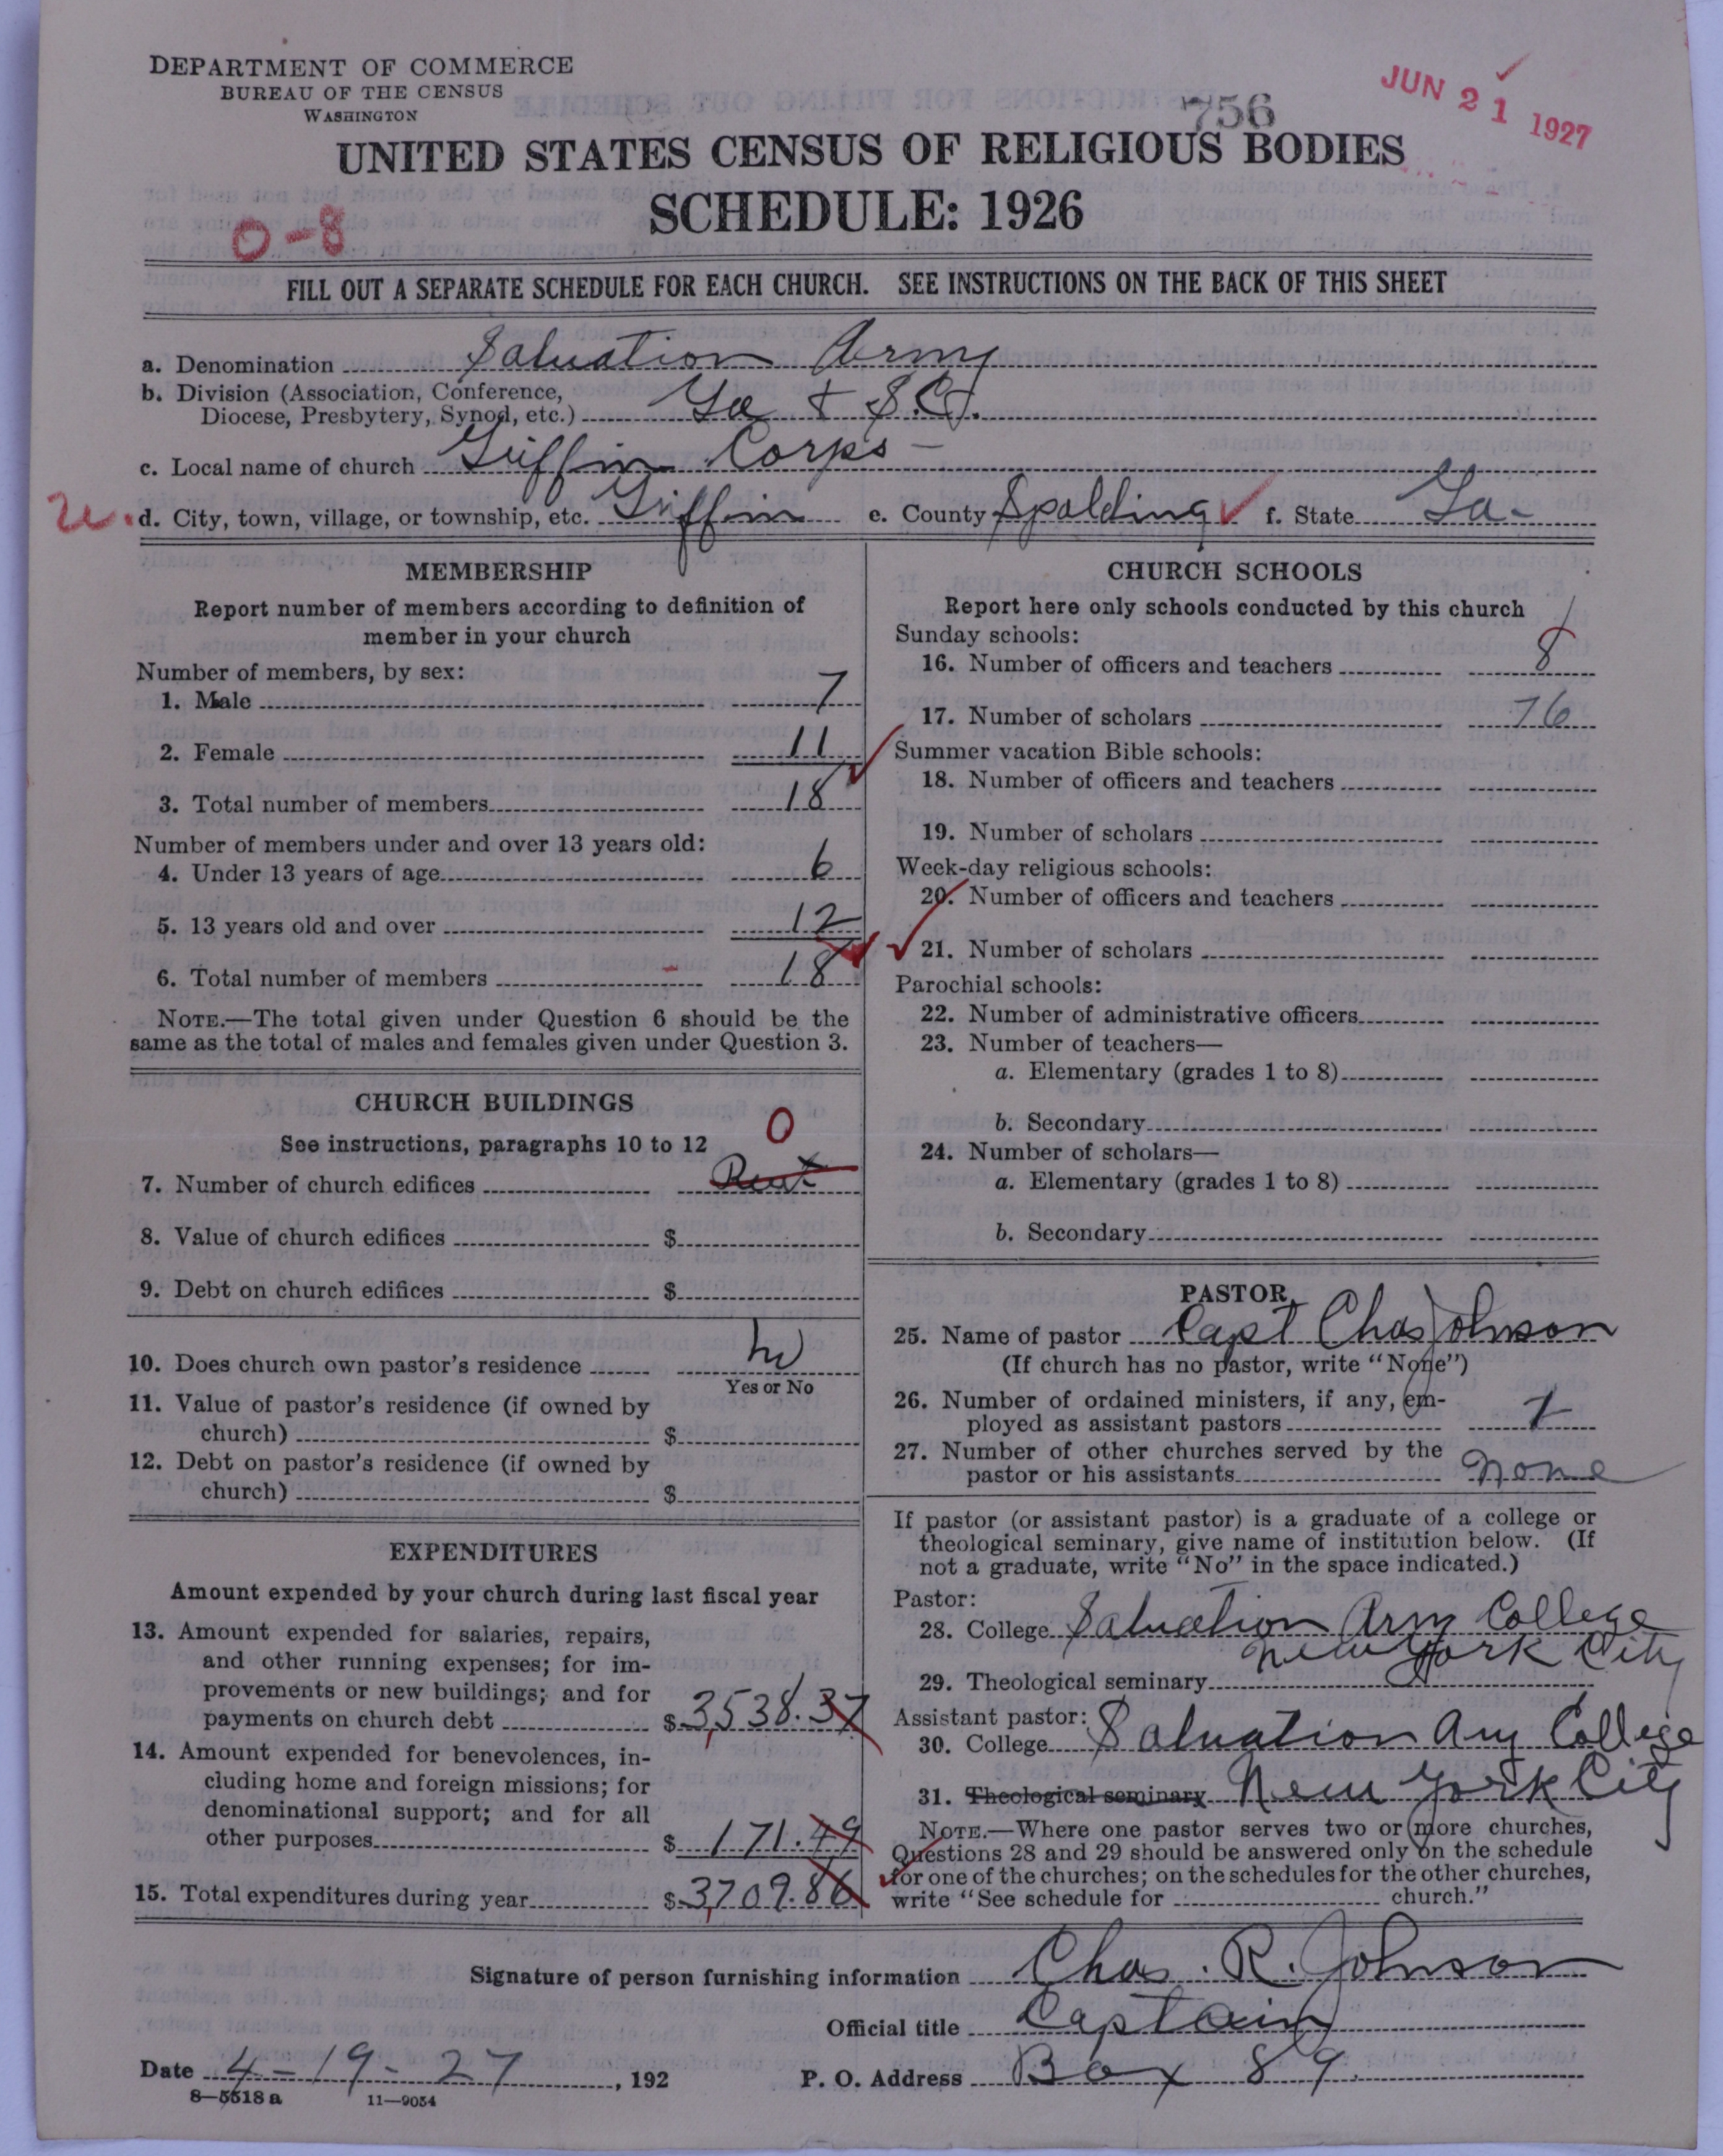 DEPARTMENT OF COMMERCE
BUREAU OF THE CENSUS
WASHINGTON
756
JUN 21 1927
UNITED STATES CENSUS OF RELIGIOUS BODIES
SCHEDULE: 1926
0-8
FILL OUT A SEPARATE SCHEDULE FOR EACH CHURCH. SEE INSTRUCTIONS ON THE BACK OF THIS SHEET
a. Denomination Salvation Army
b. Division (Association, Conference,
Diocese, Presbytery, Synod, etc.) Ga & S.C.
c. Local name of church Griffin Corps -
d. City, town, village, or township, etc. Griffin e. County Spalding f. State Ga-
MEMBERSHIP
Report number of members according to definition of
member in your church
Number of members, by sex:
1. Male 7
2. Female 11
3. Total number of members 18
Number of members under and over 13 years old:
4. Under 13 years of age 6
5. 13 years old and over 12
6. Total number of members 18
NOTE.—The total given under Question 6 should be the
same as the total of males and females given under Question 3.
CHURCH BUILDINGS
See instructions, paragraphs 10 to 12 0
7. Number of church edifices Rent
8. Value of church edifices $
9. Debt on church edifices $
10. Does church own pastor's residence
Yes or No
11. Value of pastor's residence (if owned by
church) $
12. Debt on pastor's residence (if owned by
church) $
EXPENDITURES
Amount expended by your church during last fiscal year
13. Amount expended for salaries, repairs,
and other running expenses; for im-
provements or new buildings; and for
payments on church debt $ 3,538.37
14. Amount expended for benevolences, in-
cluding home and foreign missions; for
denominational support; and for all
other purposes $ 171.49
15. Total expenditures during year $ 3,709.86
CHURCH SCHOOLS
Report here only schools conducted by this church
Sunday schools:
16. Number of officers and teachers 8
17. Number of scholars 76
Summer vacation Bible schools:
18. Number of officers and teachers
19. Number of scholars
Week-day religious schools:
20. Number of officers and teachers
21. Number of scholars
Parochial schools:
22. Number of administrative officers
23. Number of teachers—
a. Elementary (grades 1 to 8)
b. Secondary
24. Number of scholars—
a. Elementary (grades 1 to 8)
b. Secondary
PASTOR
25. Name of pastor Capt Chas Johnson
(If church has no pastor, write "None")
26. Number of ordained ministers, if any, em-
ployed as assistant pastors 1
27. Number of other churches served by the
pastor or his assistants None
If pastor (or assistant pastor) is a graduate of a college or
theological seminary, give name of institution below. (If
not a graduate, write "No" in the space indicated.)
Pastor:
28. College Salvation Army College
New York City
29. Theological seminary
Assistant pastor:
30. College Salvation Army College
31. Theological seminary New York City
NOTE.—Where one pastor serves two or more churches,
Questions 28 and 29 should be answered only on the schedule
for one of the churches; on the schedules for the other churches,
write "See schedule for church."
Signature of person furnishing information Chas. R. Johnson
Official title Captain
Date 4-19-27, 192 P. O. Address Box 89
8—5518 a 11—9054